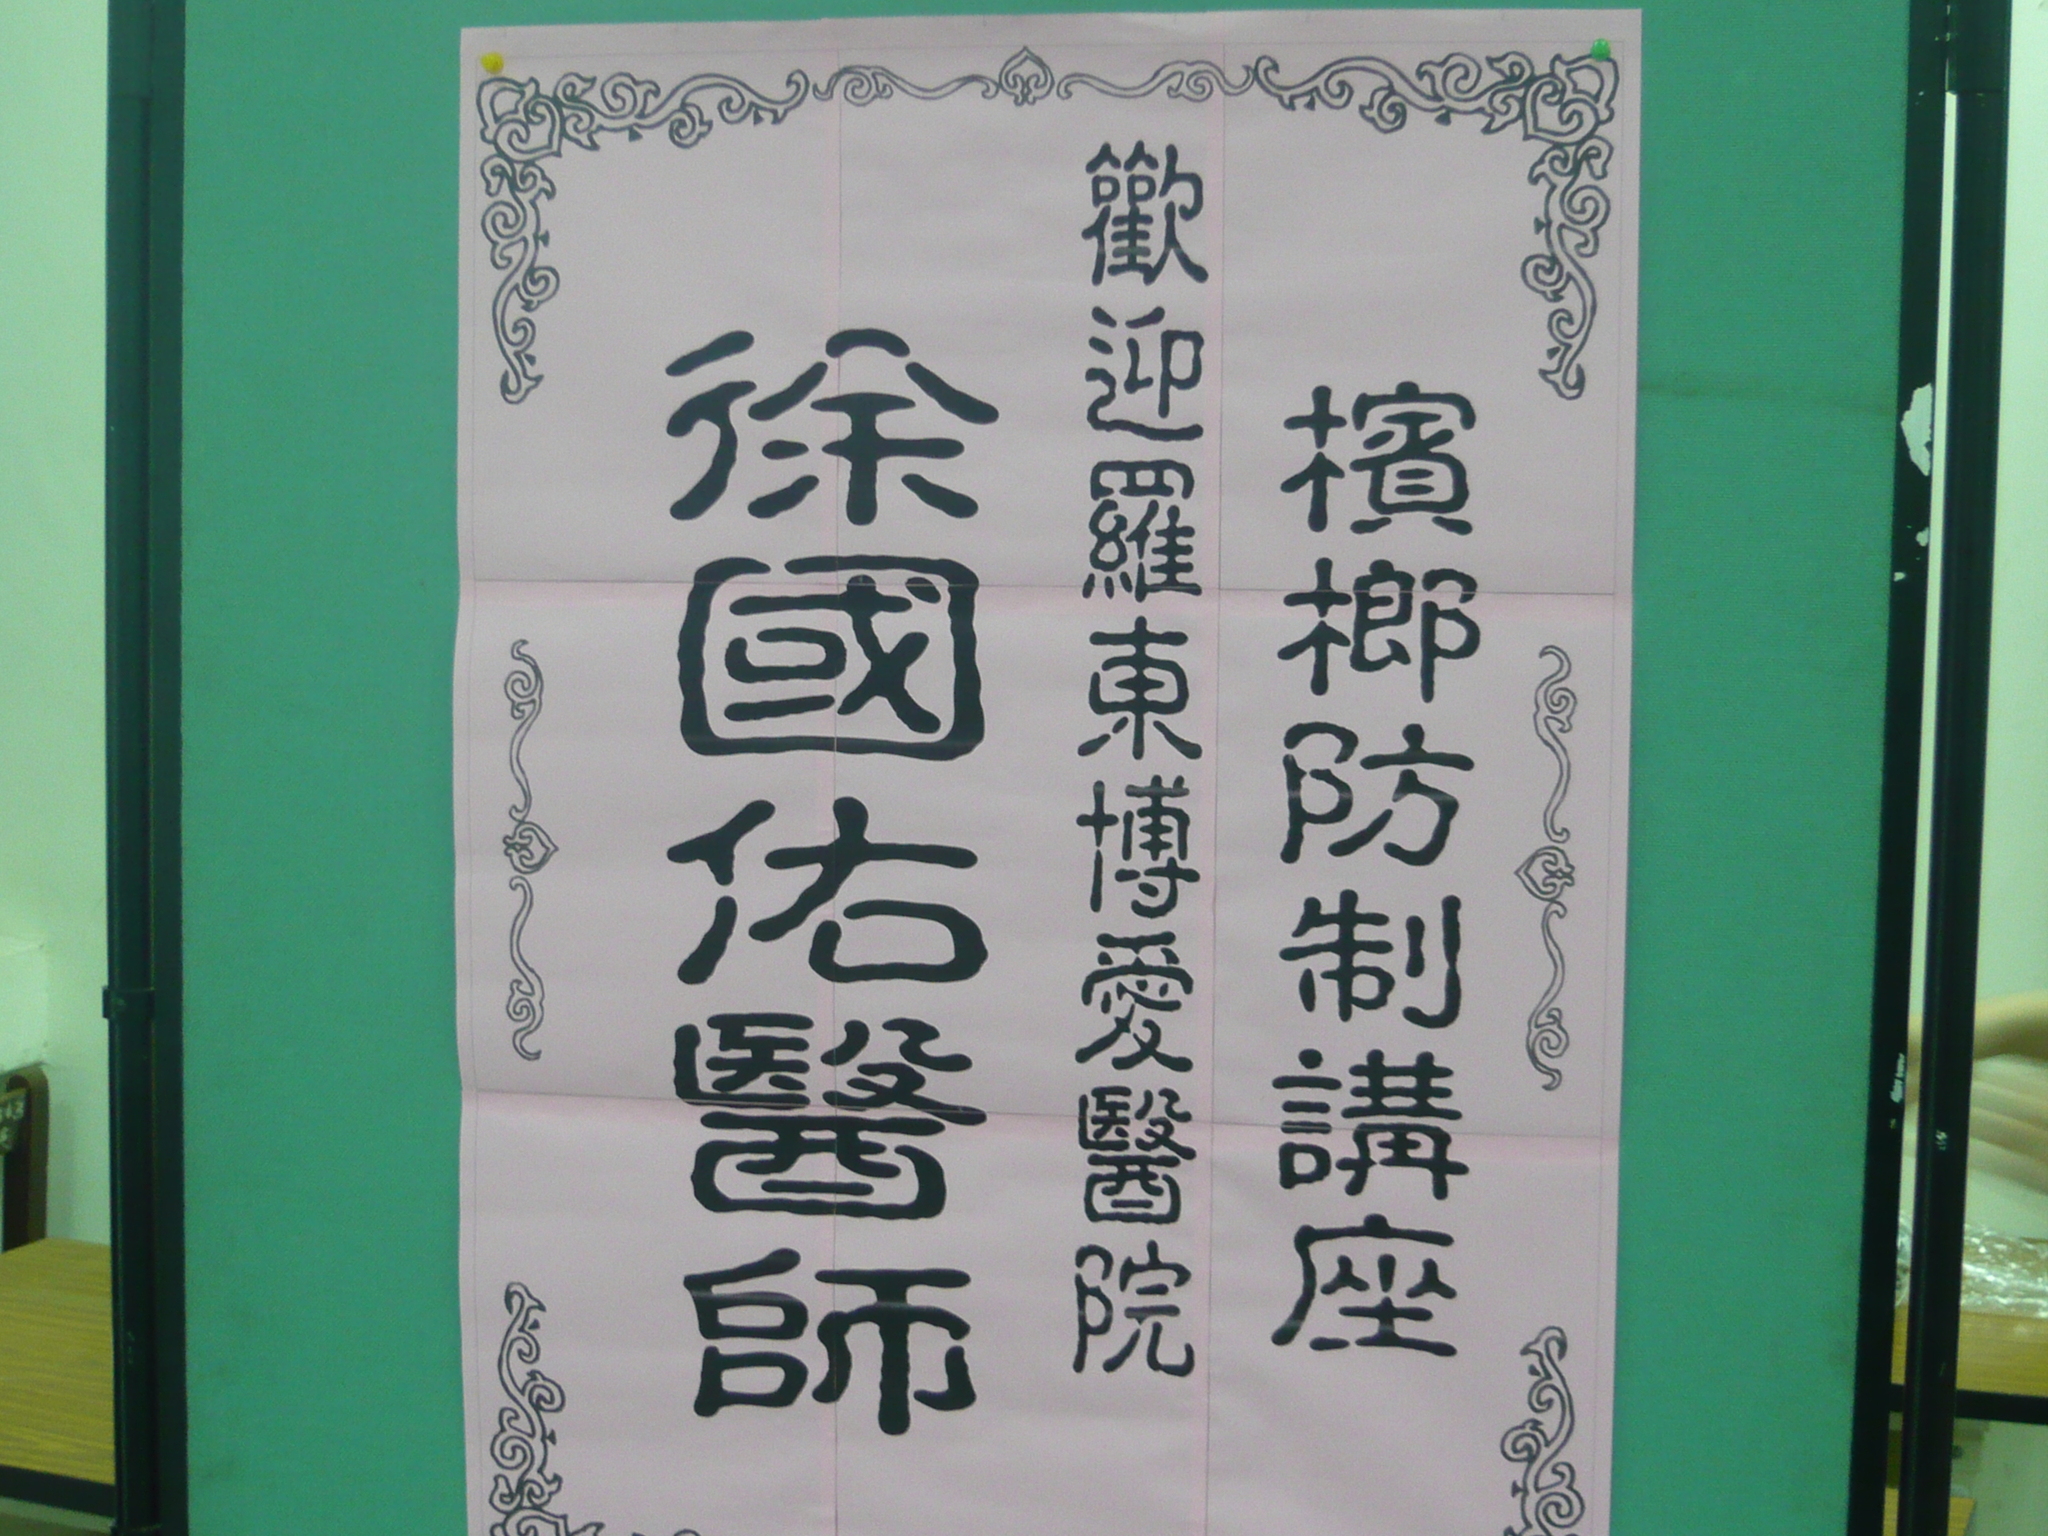 檳榔防制講座
歡迎羅東博愛醫院
徐國佑醫師